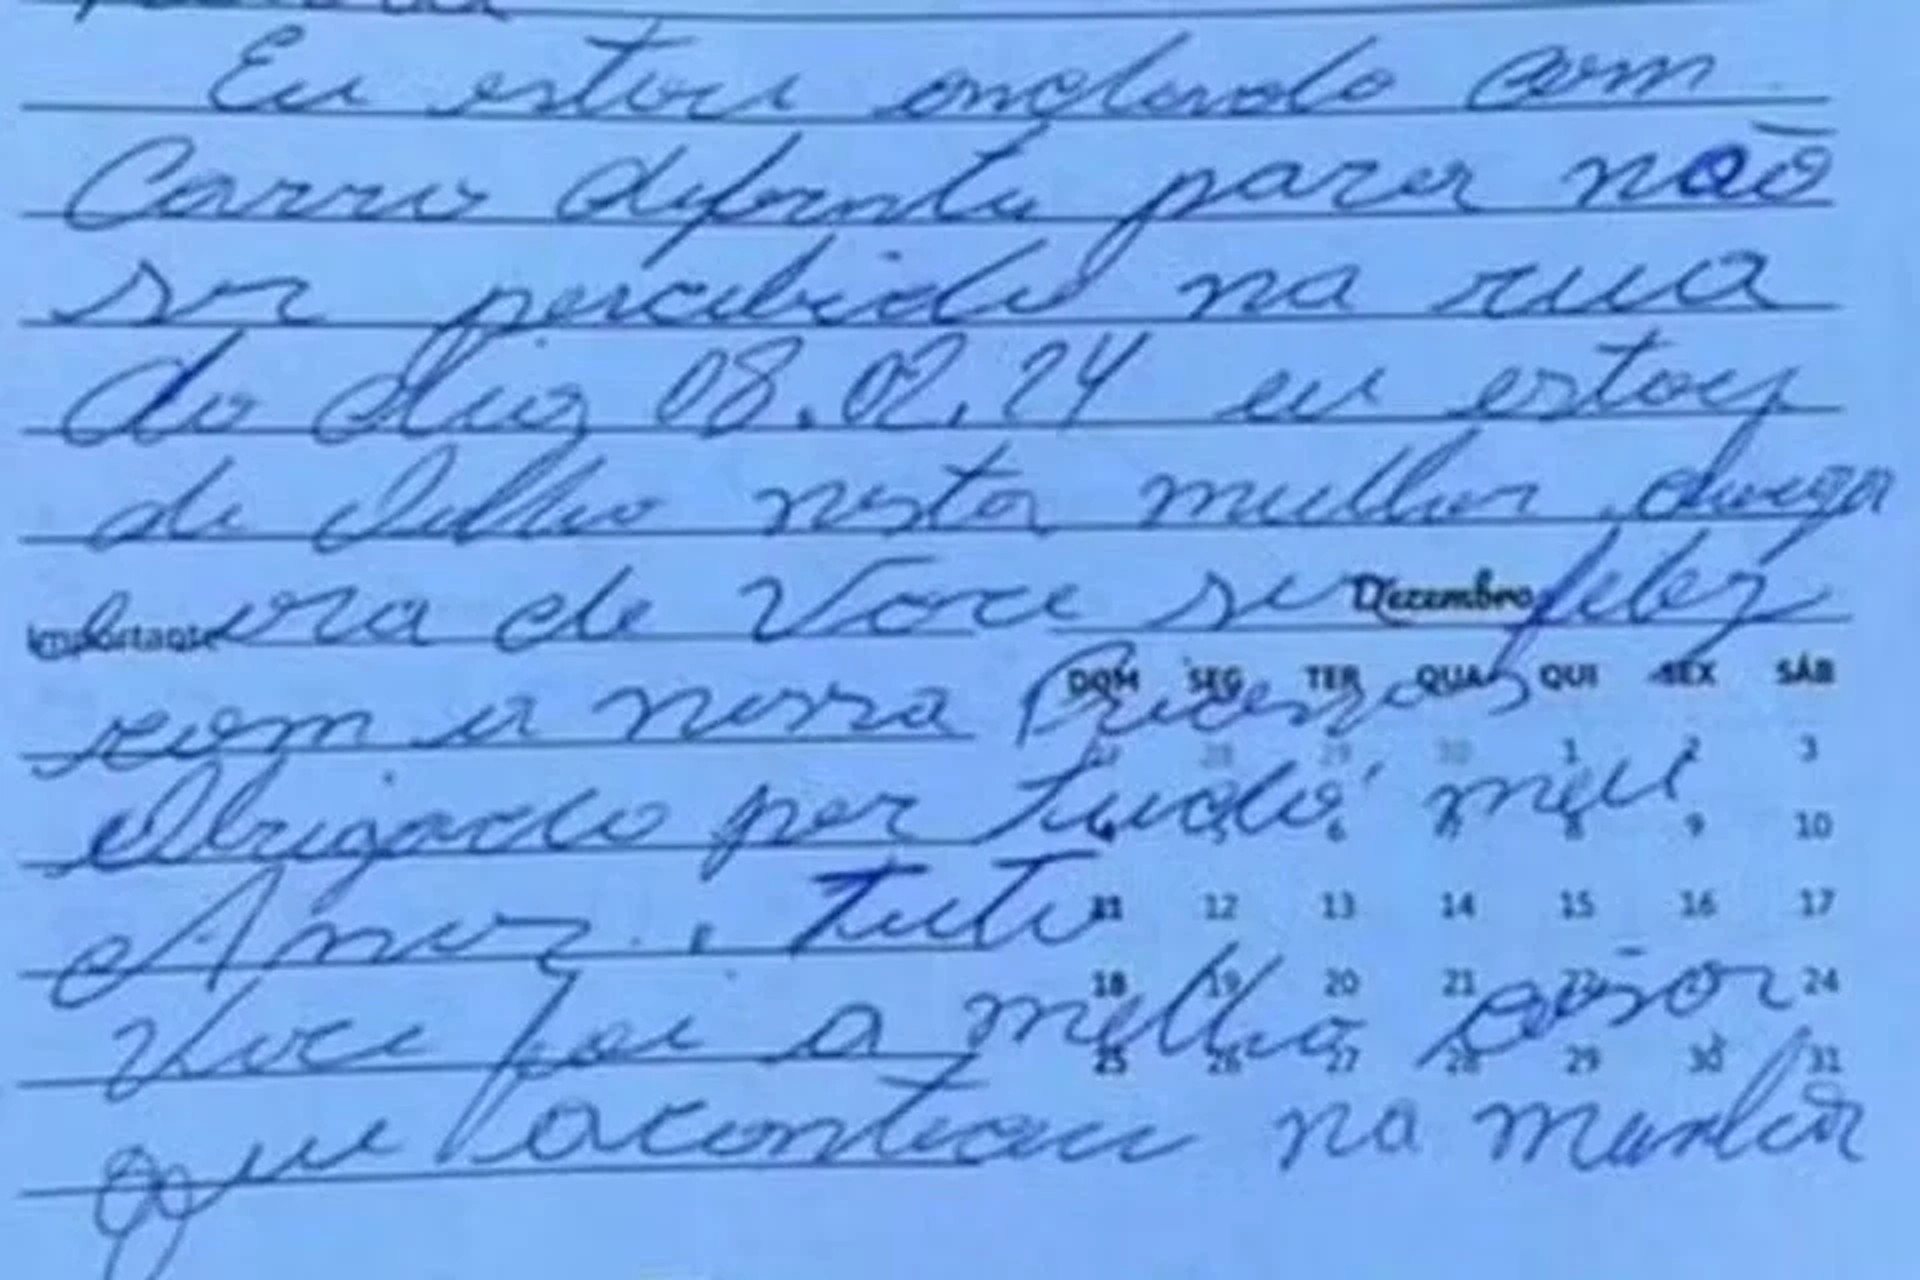 Eu estou andando com
Carro diferente para não
ser percebido na rua
do dia 08.02.24 eu estou
de olho nesta mulher chega
ora de Voce ser feliz
Importante
Dezembro
com a nossa Princesas
DOM SEG TER QUA QUI SEX SÁB
27 28 29 30 1 2 3
Obrigado por tudo meu
4 5 6 7 8 9 10
Amor. tuto
11 12 13 14 15 16 17
Voce foi a melho coisa
18 19 20 21 22 23 24
que aconteceu na minha
25 26 27 28 29 30 31